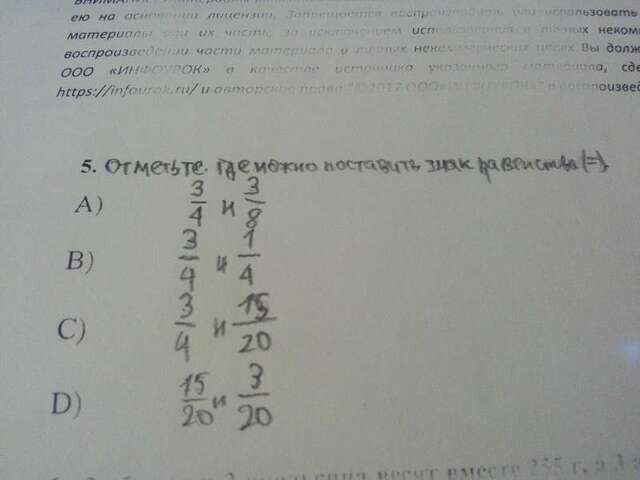 ею на основании лицензии. Запрещается воспроизводить или использовать
материалы или их часть, за исключением использования в личных неком
воспроизведении части материала в личных некоммерческих целях Вы долж
ООО «ИНФОУРОК» в качестве источника указанного материала, сде
https://infourok.ru/ и авторские права "©2017 ООО«ИНФОУРОК» и воспроизвед
5. Отметьте. Где можно поставить знак равенства (=).
A) 3/4 и 3/8
B) 3/4 и 1/4
C) 3/4 и 15/20
D) 15/20 и 3/20
весят вместе 255 г, а 3